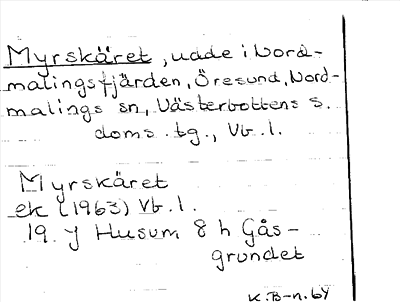 Myrskäret, udde i Nord-
malingsfjärden, Öresund, Nord-
malings sn, Västerbottens s.
doms. tg., Vb. l.
Myrskäret
ek (1963) Vb. l.
19. J Husum 8 h Gås-
grundet
K.B-n. 64